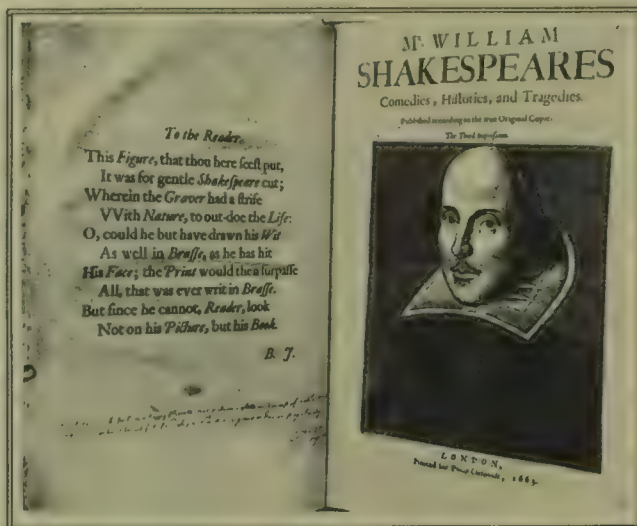 To the Reader.
This Figure, that thou here ſeeſt put,
It was for gentle Shakeſpeare cut;
Wherein the Graver had a ſtrife
VVith Nature, to out-doe the Life:
O, could he but have drawn his Wit
As well in Braſſe, as he has hit
His Face; the Print would then ſurpaſſe
All, that was ever writ in Braſſe.
But ſince he cannot, Reader, look
Not on his Picture, but his Book.
B. J.
Mr. WILLIAM
SHAKESPEARES
Comedies, Hiſtories, and Tragedies.
Publiſhed according to the true Original Copies.
The Third Impreſſion.
LONDON,
Printed for 1663.